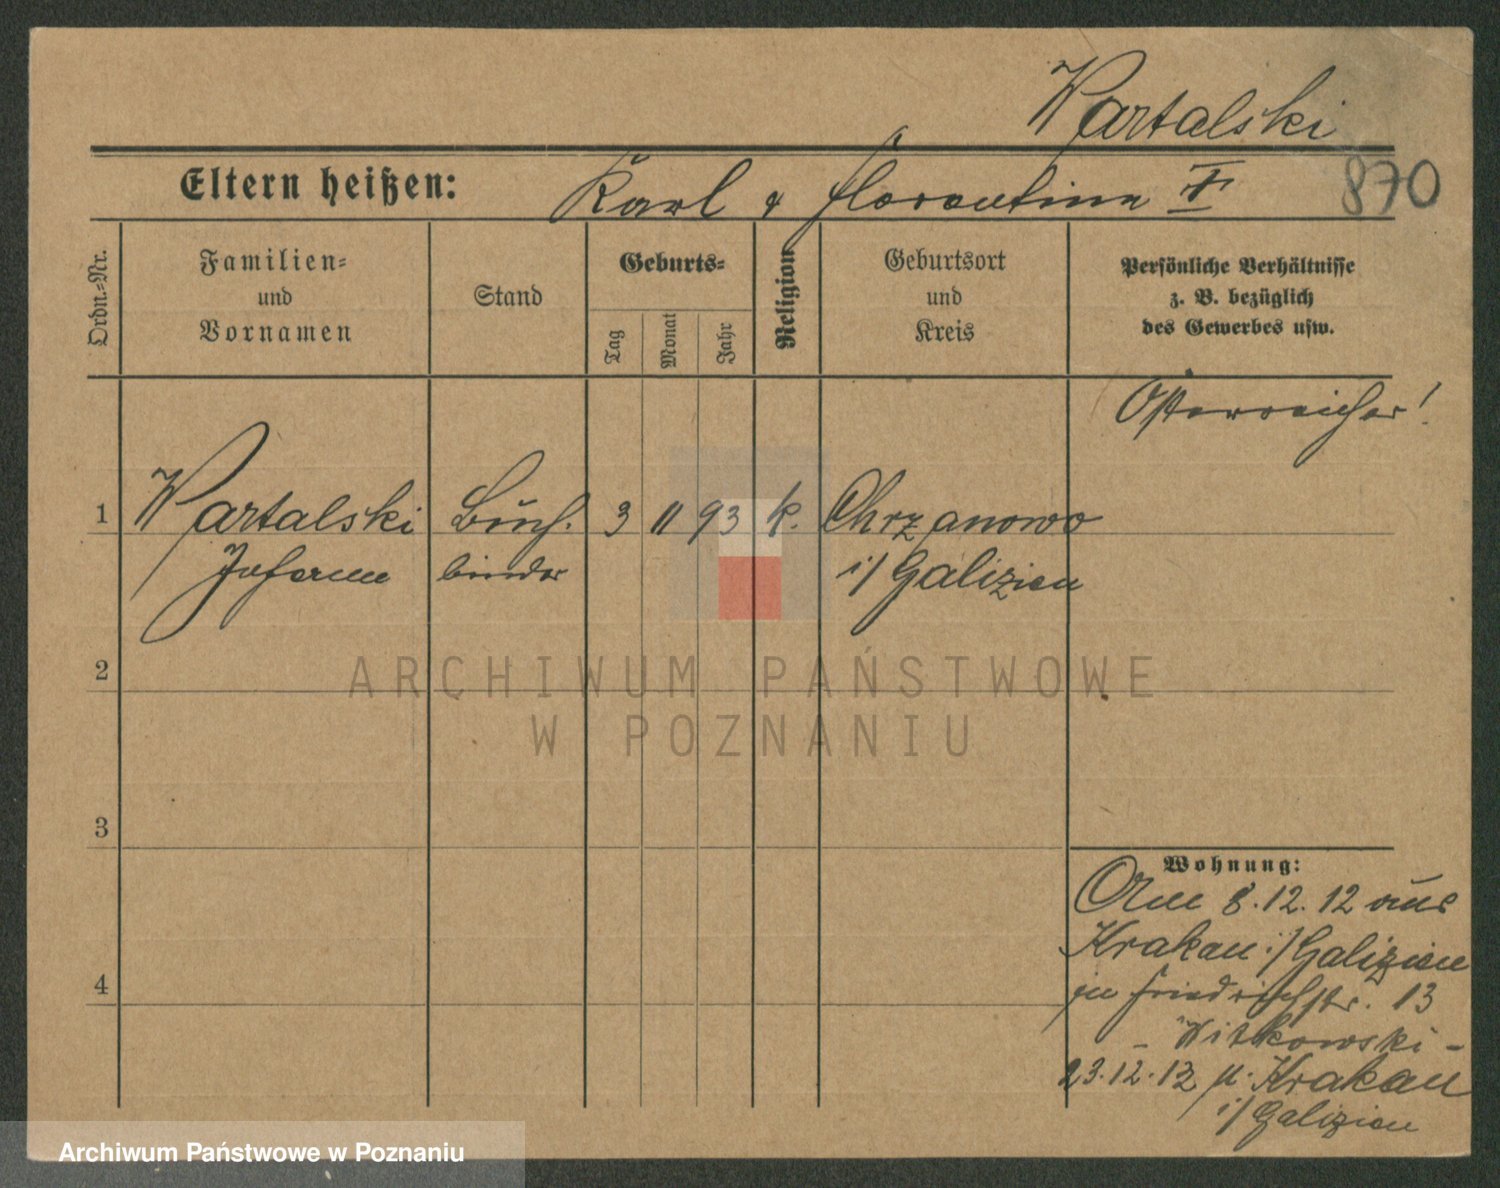 Wartalski
Eltern heißen: Karl & Florentine
870
Ordn.=Nr.
Familien=
und
Vornamen
Stand
Geburts=
Tag
Monat
Jahr
Religion
Geburtsort
und
Kreis
Persönliche Verhältnisse
z. B. bezüglich
des Gewerbes usw.
Österreicher!
1 Wartalski Buch- 3 11 93 k. Chrzanowo
binder i/ Galizien
2
ARCHIWUM PAŃSTWOWE
W POZNANIU
3
Wohnung:
Am 8.12.12 aus
Krakau i/ Galizien
in Friedrichstr. 13
- Witkowski -
23.12.12 n. Krakau
i/ Galizien
4
Archiwum Państwowe w Poznaniu